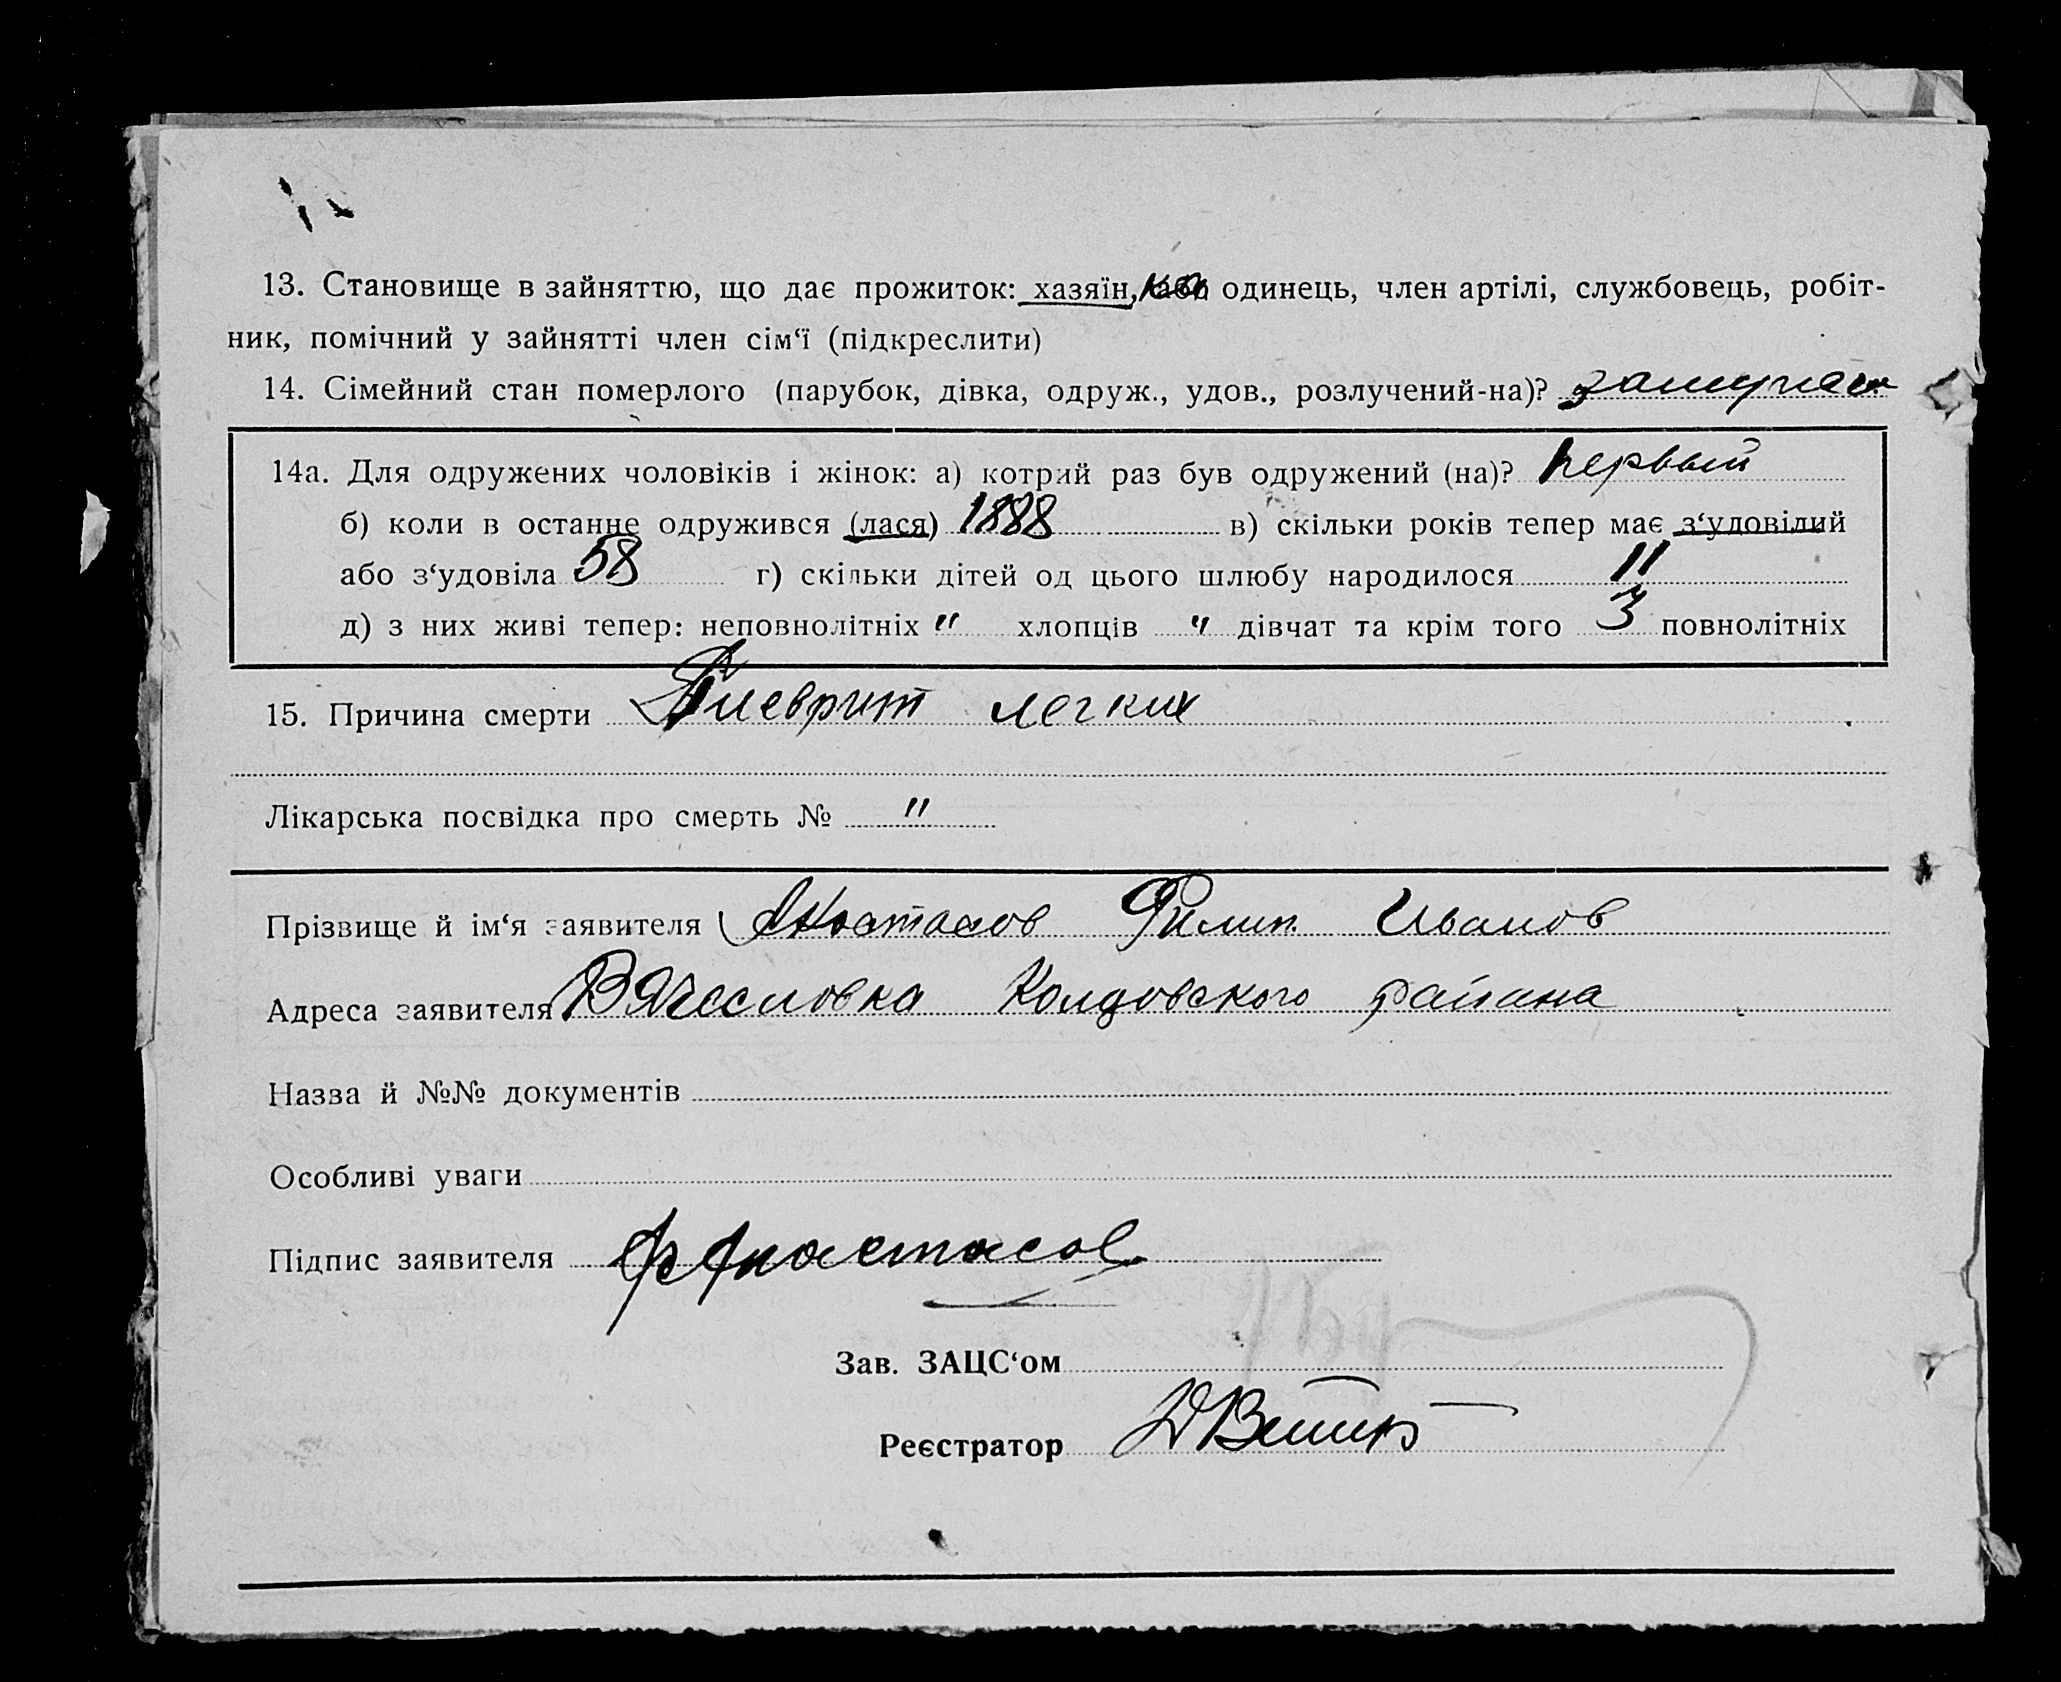 13. Становище в зайняттю, що дає прожиток: хазяїн, або одинець, член артілі, службовець, робіт-
ник, помічний у зайнятті член сім‘ї (підкреслити)
14. Сімейний стан померлого (парубок, дівка, одруж., удов., розлучений-на)?
14а. Для одружених чоловіків і жінок: а) котрий раз був одружений (на)? первый
б) коли в останнє одружився (лася) 1888 в) скільки років тепер має з‘удовілий
або з‘удовіла 58 г) скільки дітей од цього шлюбу народилося 11
д) з них живі тепер: неповнолітніх " хлопців " дівчат та крім того 3 повнолітніх
15. Причина смерти Плеврит легких
Лікарська посвідка про смерть № "
Прізвище й ім‘я заявителя Анастасов Филип. Иванов
Адреса заявителя Вячесловка Колдовского района
Назва й №№ документів
Особливі уваги
Підпис заявителя Ф Анастасов
Зав. ЗАЦС‘ом
Реєстратор